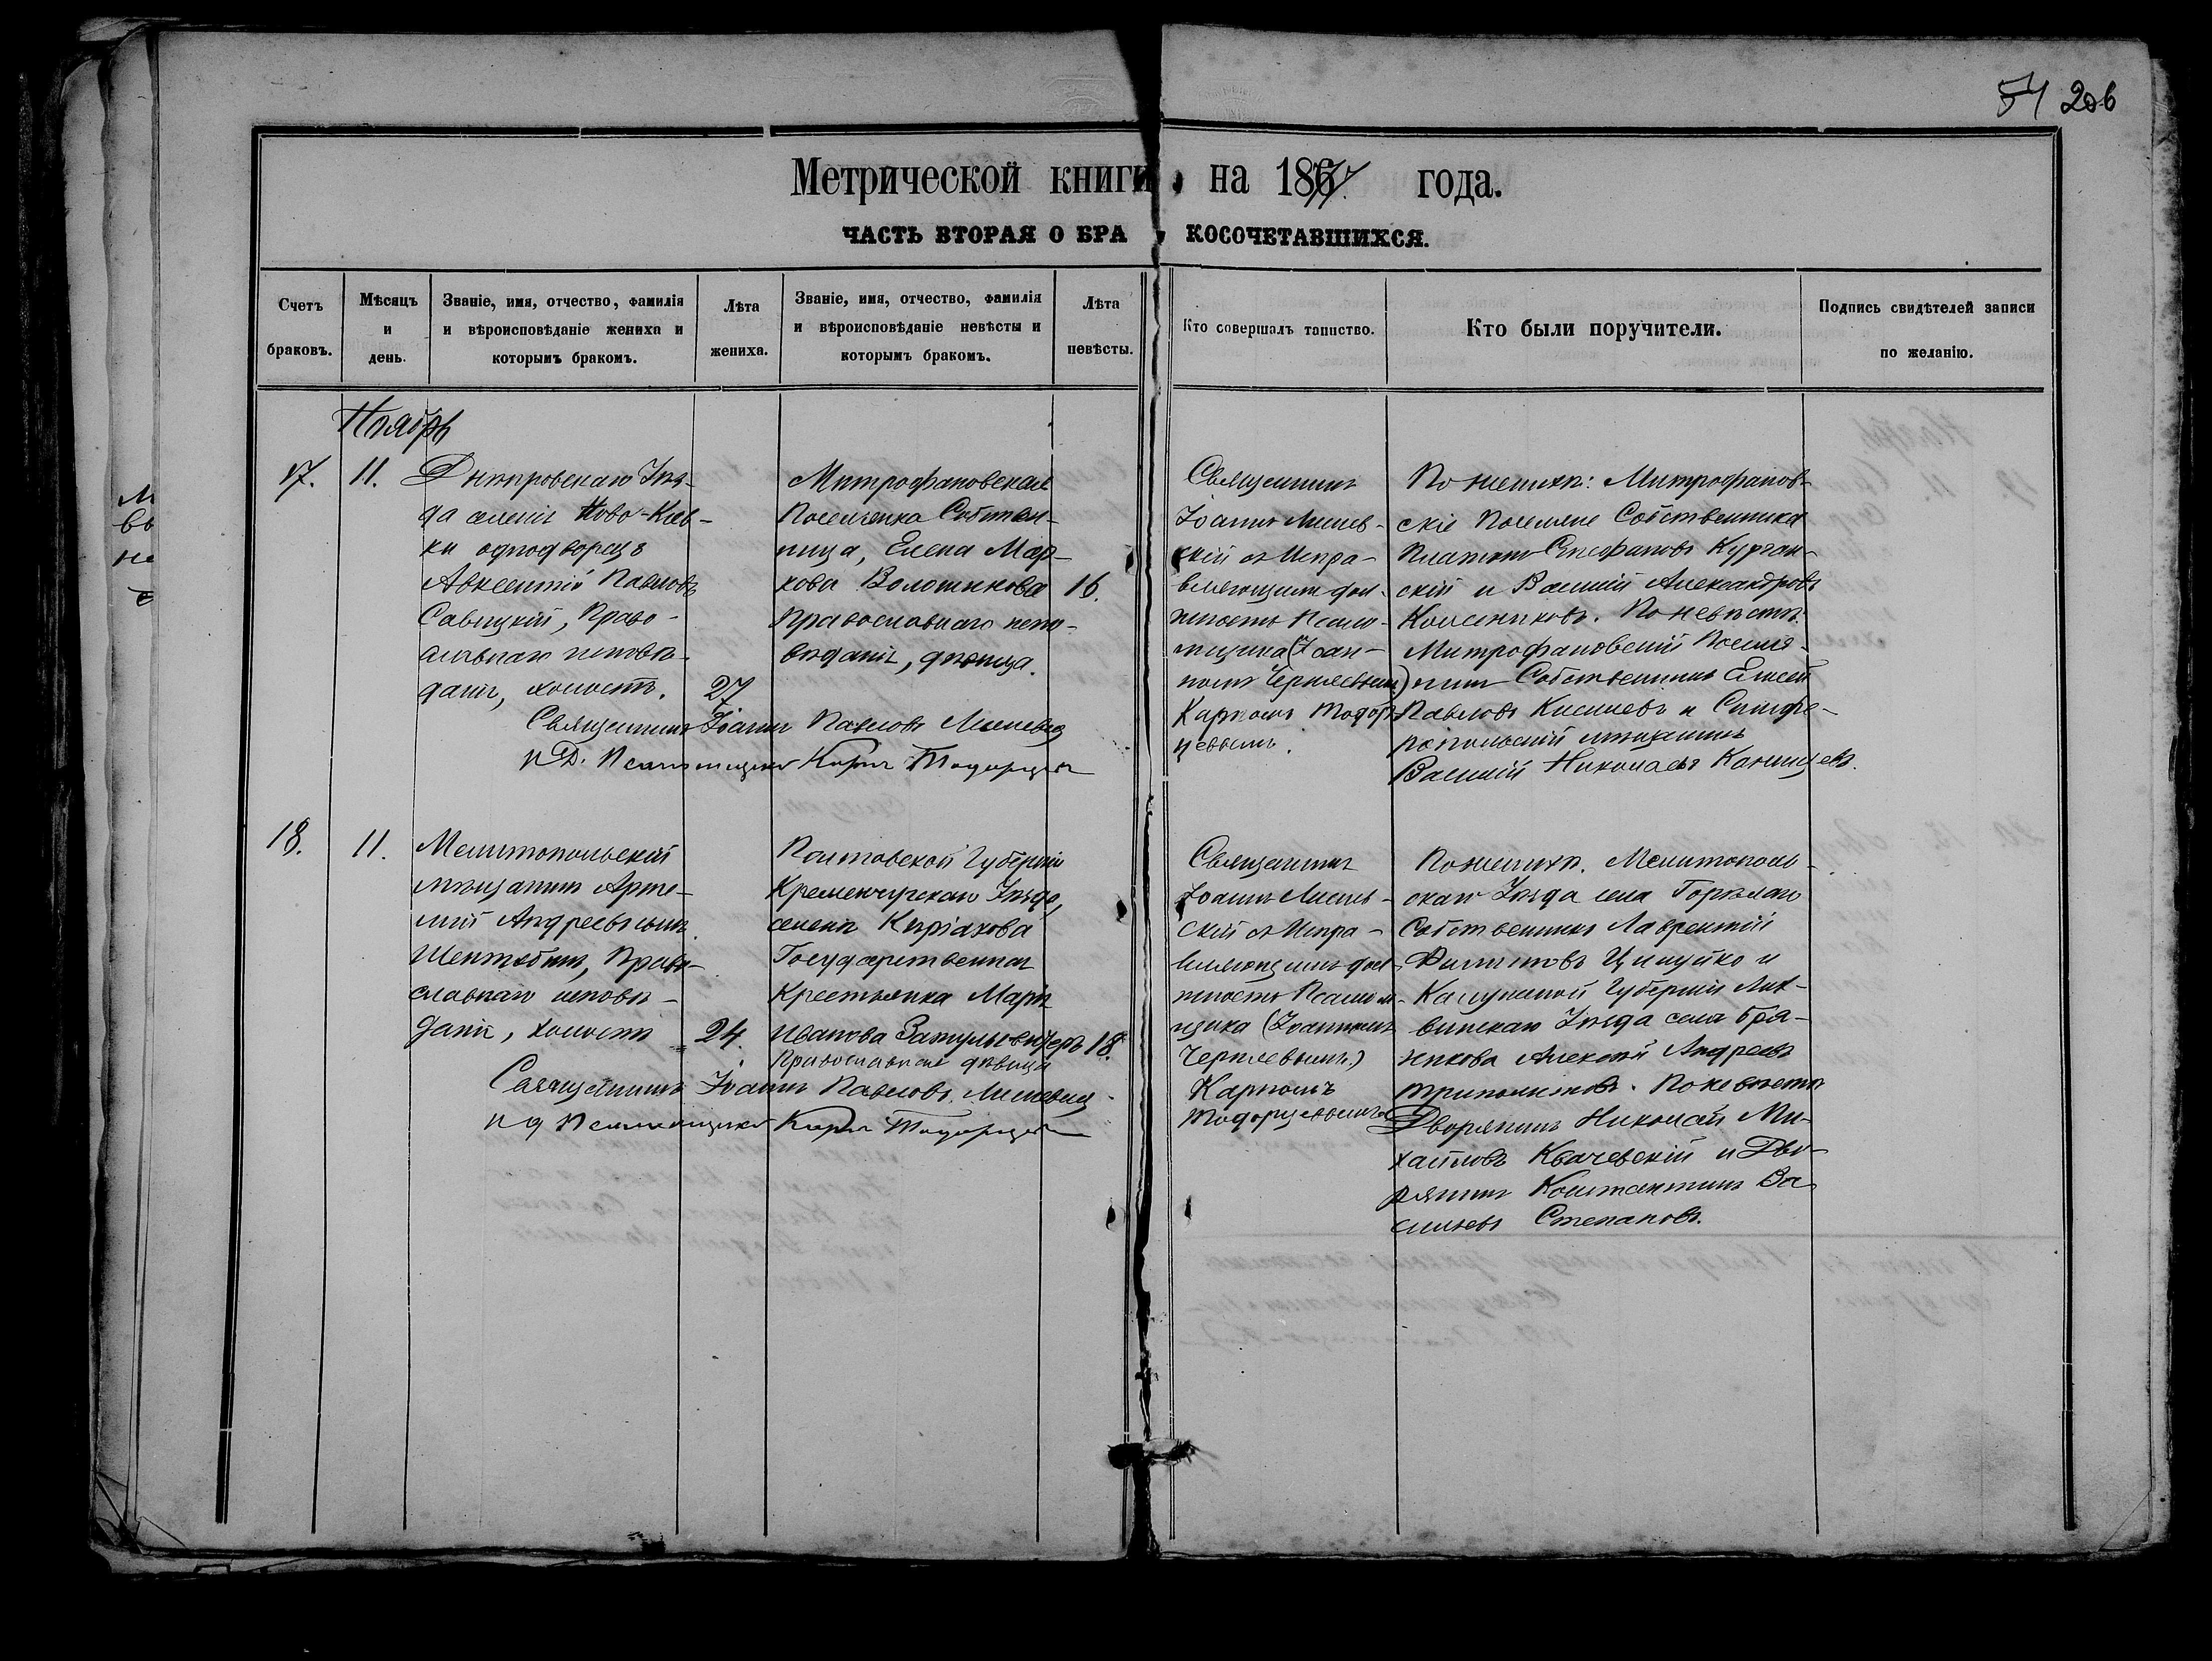 54 206
Метрической книги на 1877 года.
ЧАСТЬ ВТОРАЯ О БРАКОСОЧЕТАВШИХСЯ.
Счетъ браковъ.
Мѣсяцъ и день.
Званіе, имя, отчество, фамилія
и вѣроисповѣданіе жениха и
которымъ бракомъ.
Лѣта
жениха.
Званіе, имя, отчество, фамилія
и вѣроисповѣданіе невѣсты и
которымъ бракомъ.
Лѣта
невѣсты.
Кто совершалъ таинство.
Кто были поручители.
Подпись свидѣтелей записи
по желанію.
Ноябрь
17.
11.
Днѣпровскаго Уѣз-
да селенія Ново-Кіев-
ки однодворецъ
Авксентій Павловъ
Савицкій, Право-
славнаго исповѣ-
данія, холостъ.
27
Митрофановская
Поселянка Собствен-
ница, Елена Мар-
кова Волошинова
Православнаго испо-
вѣданія, дѣвица.
16.
Священникъ
Іоаннъ
скій съ Испра-
вляющимъ дол-
жность Псалом-
щика (Іоан-
номъ Чернявскимъ)
Карпомъ Тодор-
цевымъ.
По женихѣ: Митрофанов-
скіе Поселяне Собственники
Платонъ Стефановъ Курган-
скій и Василій Александровъ
Колесниковъ. По невѣстѣ:
Митрофановскій Поселя-
нинъ Собственникъ Елисей
Павловъ Киселевъ и Симфе-
ропольскій мѣщанинъ
Василій Николаевъ
Священникъ Іоаннъ Павловъ
И Д. Псаломщика Карпъ Тодорцевъ
18.
11.
Мелитопольскій
мѣщанинъ Арте-
мій Андреевъ сынъ
Право-
славнаго исповѣ-
данія, холостъ
24.
Полтавской Губерніи
Кременчугскаго Уѣзда,
селенія Киріакова
Государственная
Крестьянка Марія
Иванова
Православная дѣвица
18.
Священникъ
Іоаннъ
скій съ Испра-
вляющимъ дол-
жность Псалом-
щика (Іоанномъ
Чернявскимъ)
Карпомъ
Тодорцевымъ
По женихѣ. Мелитополь-
скаго Уѣзда села Горѣлаго
Собственникъ Лаврентій
Филиповъ Цилуйко и
Калужской Губерніи Лих-
винскаго Уѣзда села
Алексѣй Андреевъ
По невѣстѣ
Дворянинъ Николай Ми-
хайловъ Квачевскій и Дво-
рянинъ Константинъ Ва-
сильевъ Степановъ.
Священникъ Іоаннъ Павловъ
И д Псаломщика Карпъ Тодорцевъ